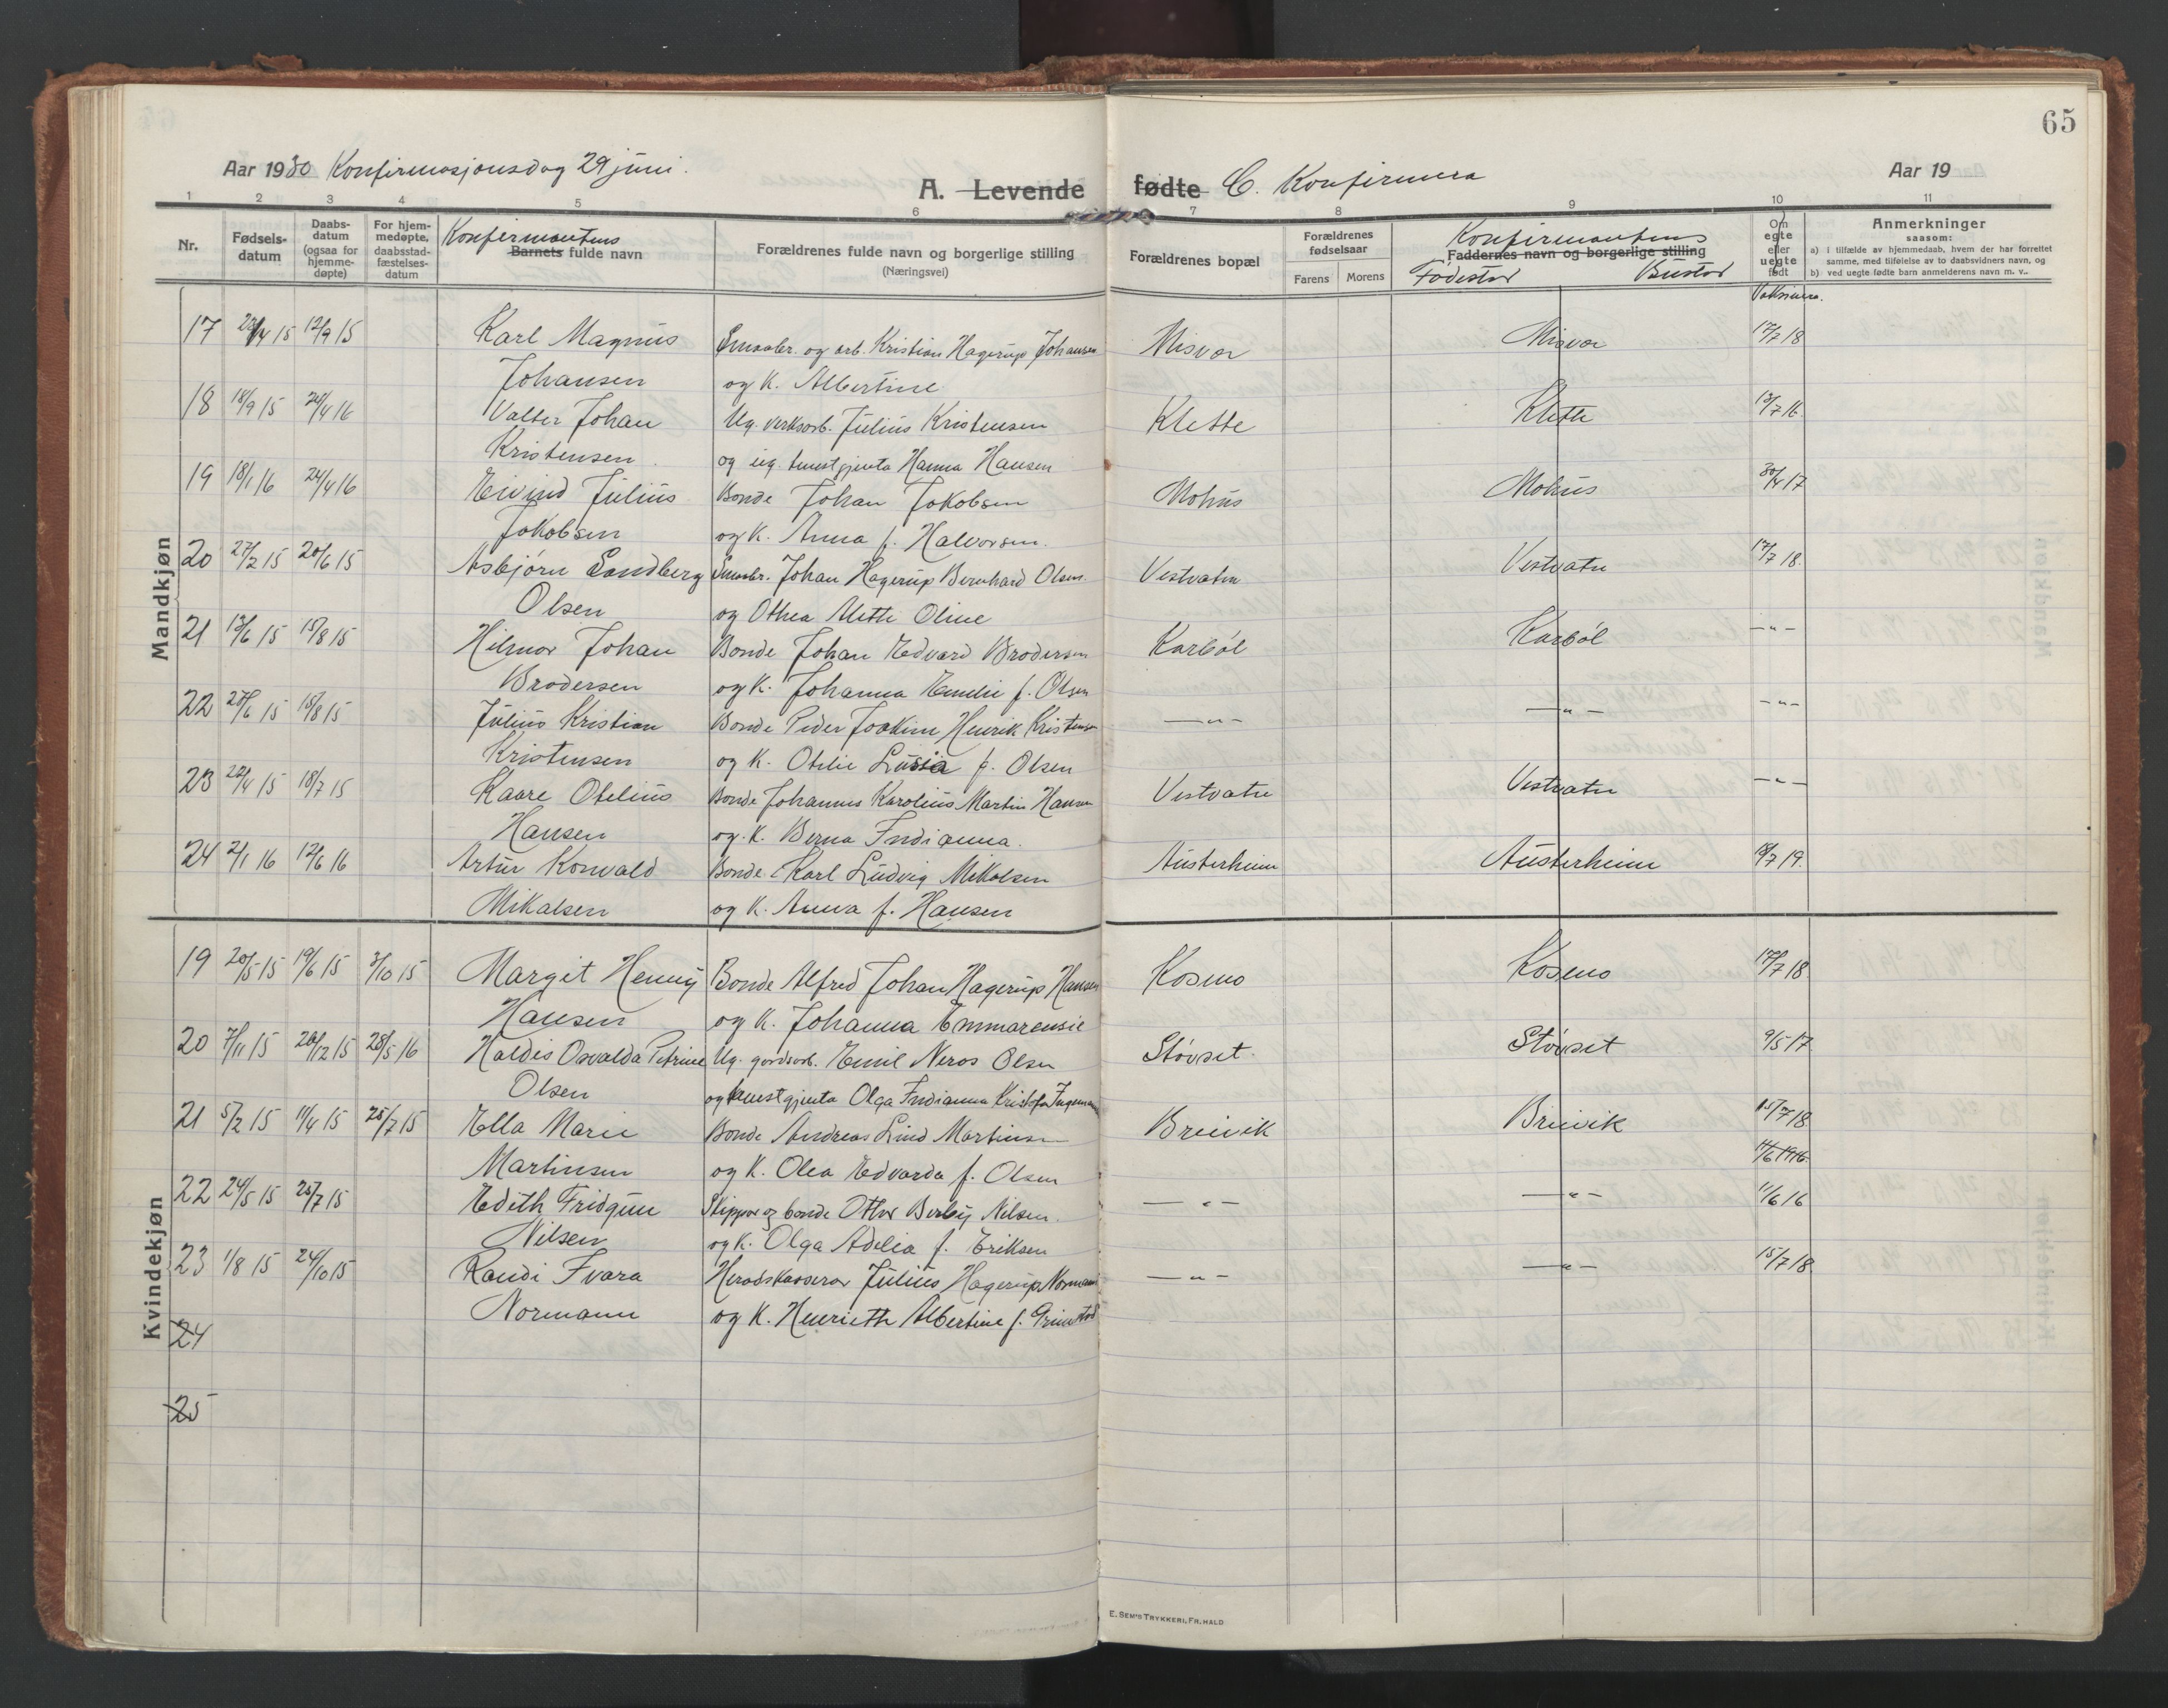 65
Aar 1930 Konfirmasjonsdag 29 juni.
A. Levende fødte C. Konfirmera
Aar 19
1 2 3 4 5 6 7 8 9 10 11
Nr.
Fødsels-
datum
Daabs-
datum
(ogsaa for
hjemme-
døpte)
For hjem-
medøpte,
daabsstad-
fæstelses-
datum
Konfirmantens
Barnets fulde navn
Forældrenes fulde navn og borgerlige stilling
(Næringsvei)
Forældrenes bopæl
Forældrenes
fødselsaar
Farens Morens
Konfirmantens
Faddernes navn og borgerlige stilling
Fødestad Bustad
Om
egte
eller
uegte
født
Vaksinera.
Anmerkninger
saasom:
a) i tilfælde av hjemmedaab, hvem der har forrettet
samme, med tilføielse av to daabsvidners navn, og
b) ved uegte fødte barn anmelderens navn m. v..
Mandkjøn
17 22/4 15 12/9 15 Karl Magnus Smaabr. og arb. Kristian Hagerup Johansen Misvær Misvær 17/7 18
Johansen og k. Albertine
18 18/9 15 24/4 16 Valter Johan Ug. verksarb. Julius Kristensen Klette Klette 13/7 16
Kristensen og ug. tenestgjenta Hanna Hansen
19 18/1 16 24/4 16 Eivind Julius Bonde Johan Jakobsen Mohus Mohus 30/4 17
Jakobsen og k. Anna f. Halvorsen.
20 27/2 15 20/6 15 Asbjørn Sandberg Smaabr. Johan Hagerup Bernhard Olsen. Vestvatn Vestvatn 17/7 18.
Olsen og Othea Mette Oline
21 13/6 15 15/8 15 Hilmar Johan Bonde Johan Edvard Brodersen Karbøl Karbøl —"—
Brodersen og k. Johanna Emelie f. Olsen
22 28/6 15 15/8 15 Julius Kristian Bonde Peder Joakim Henrik Kristensen —"— —"— —"—
Kristensen og k. Otelie Lusia f. Olsen
23 22/4 15 18/7 15 Kaare Otelius Bonde Johannes Karolius Martin Hansen Vestvatn Vestvatn —"—
Hansen og. k. Berna Indianna.
24 2/1 16 12/6 16 Artur Konvald Bonde Karl Ludvig Mikalsen Austerheim Austerheim 18/7 19.
Mikalsen og k. Anna f. Hansen
Kvindekjøn
19 20/5 15 19/6 15 3/10 15 Margit Henny Bonde Alfred Johan Hagerup Hansen Kosmo Kosmo 17/7 18
Hansen og k. Johanna Emmarensie
20 7/11 15 26/12 15 28/5 16 Haldis Osvalda Petrine Ug. gardsarb. Emil Neros Olsen Støvset. Støvset 9/5 17
Olsen og tenestgjenta Olga Indianna Kristofa Ingemann
21 5/2 15 11/4 15 25/7 15 Ella Marie Bonde Andreas Lind Martinsen Breivik Breivik 15/7 18
Martinsen og k. Olea Edvarda f. Olsen 11/6 1916.
22 24/5 15 25/7 15 Edith Fridgun Skippar og bonde Othar Berby Nilsen. —"— —"— 11/6 16
Nilsen og k. Olga Adelia f. Eriksen
23 1/8 15 24/10 15 Randi Ivara Heradskasserar Julius Hagerup Normann —"— —"— 15/7 18
Normann og k. Henriette Albertine f. Grimstad
24
25
E. SEM'S TRYKKERI, FR.HALD